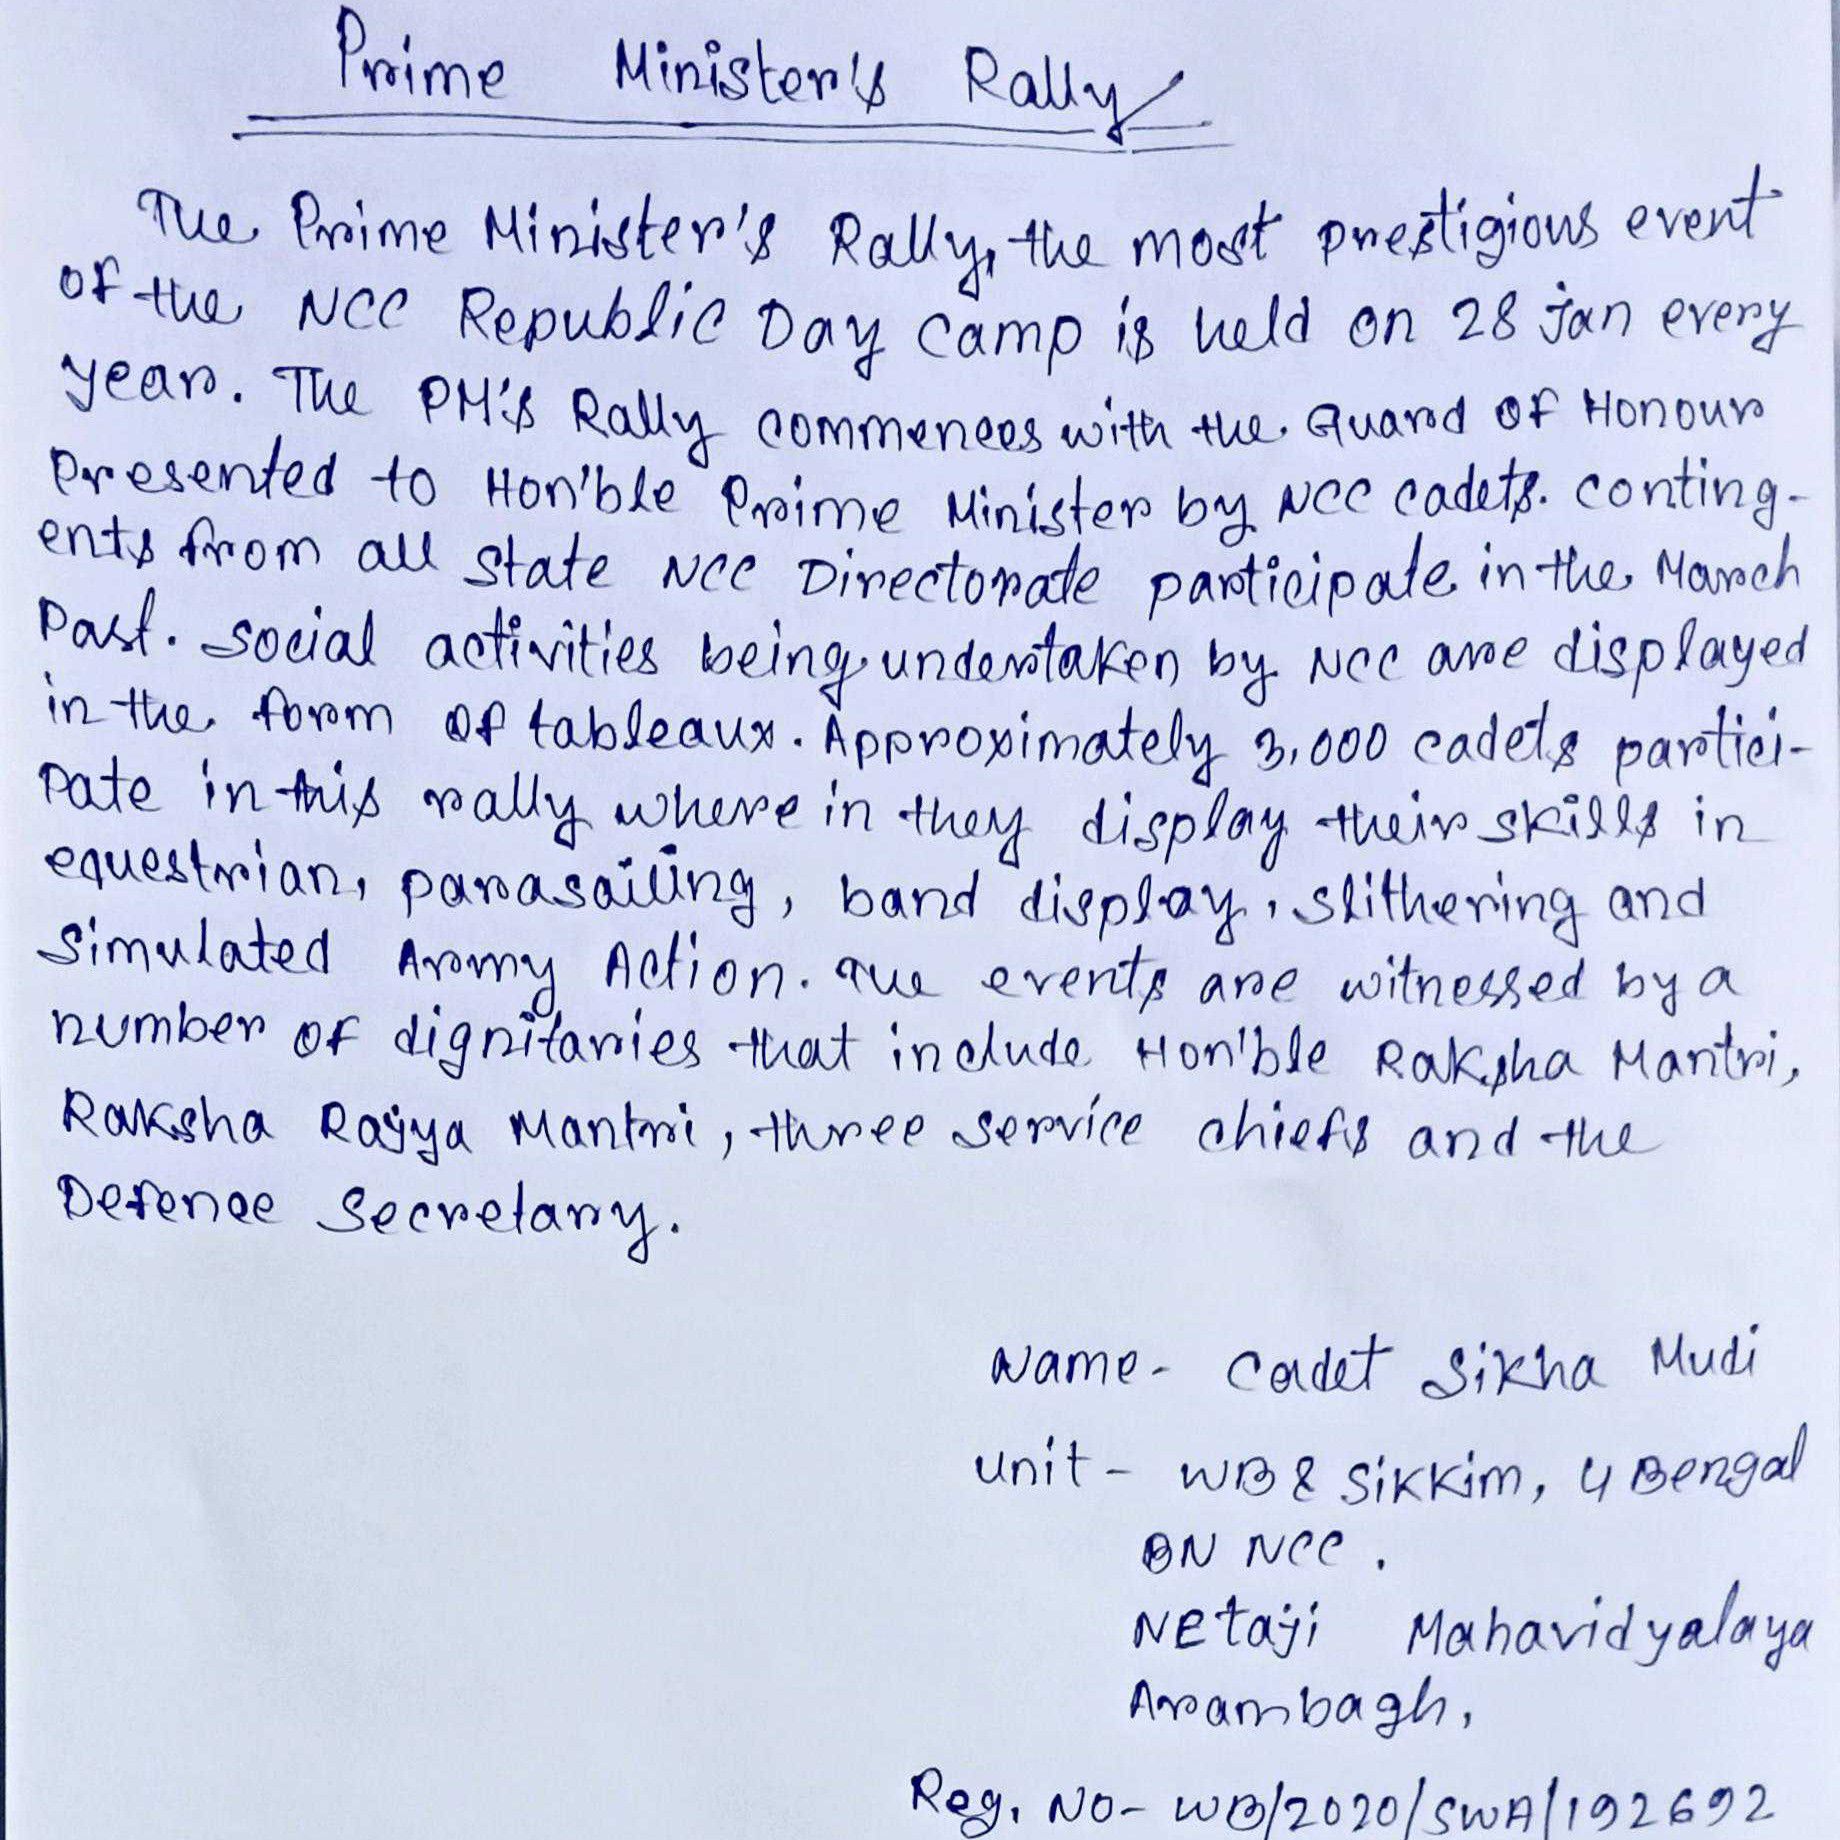 Prime Minister's Rally
The Prime Minister's Rally, the most prestigious event
of the NCC Republic Day Camp is held on 28 Jan every
year. The PM's Rally commences with the Guard of Honour
Presented to Hon'ble Prime Minister by NCC cadets. Conting-
ents from all State NCC Directorate participate in the March
Past. Social activities being undertaken by NCC are displayed
in the form of tableaux. Approximately 3,000 cadets partici-
pate in this rally where in they display their skills in
equestrian, parasailing, band display, slithering and
Simulated Army Action. The events are witnessed by a
number of dignitaries that include Hon'ble Raksha Mantri,
Raksha Rajya Mantri, three service chiefs and the
Defence Secretary.
Name- Cadet Sikha Mudi
Unit- WB & Sikkim, 4 Bengal
BN NCC.
Netaji Mahavidyalaya
Arambagh,
Reg. No- WB/2020/SWA/192692